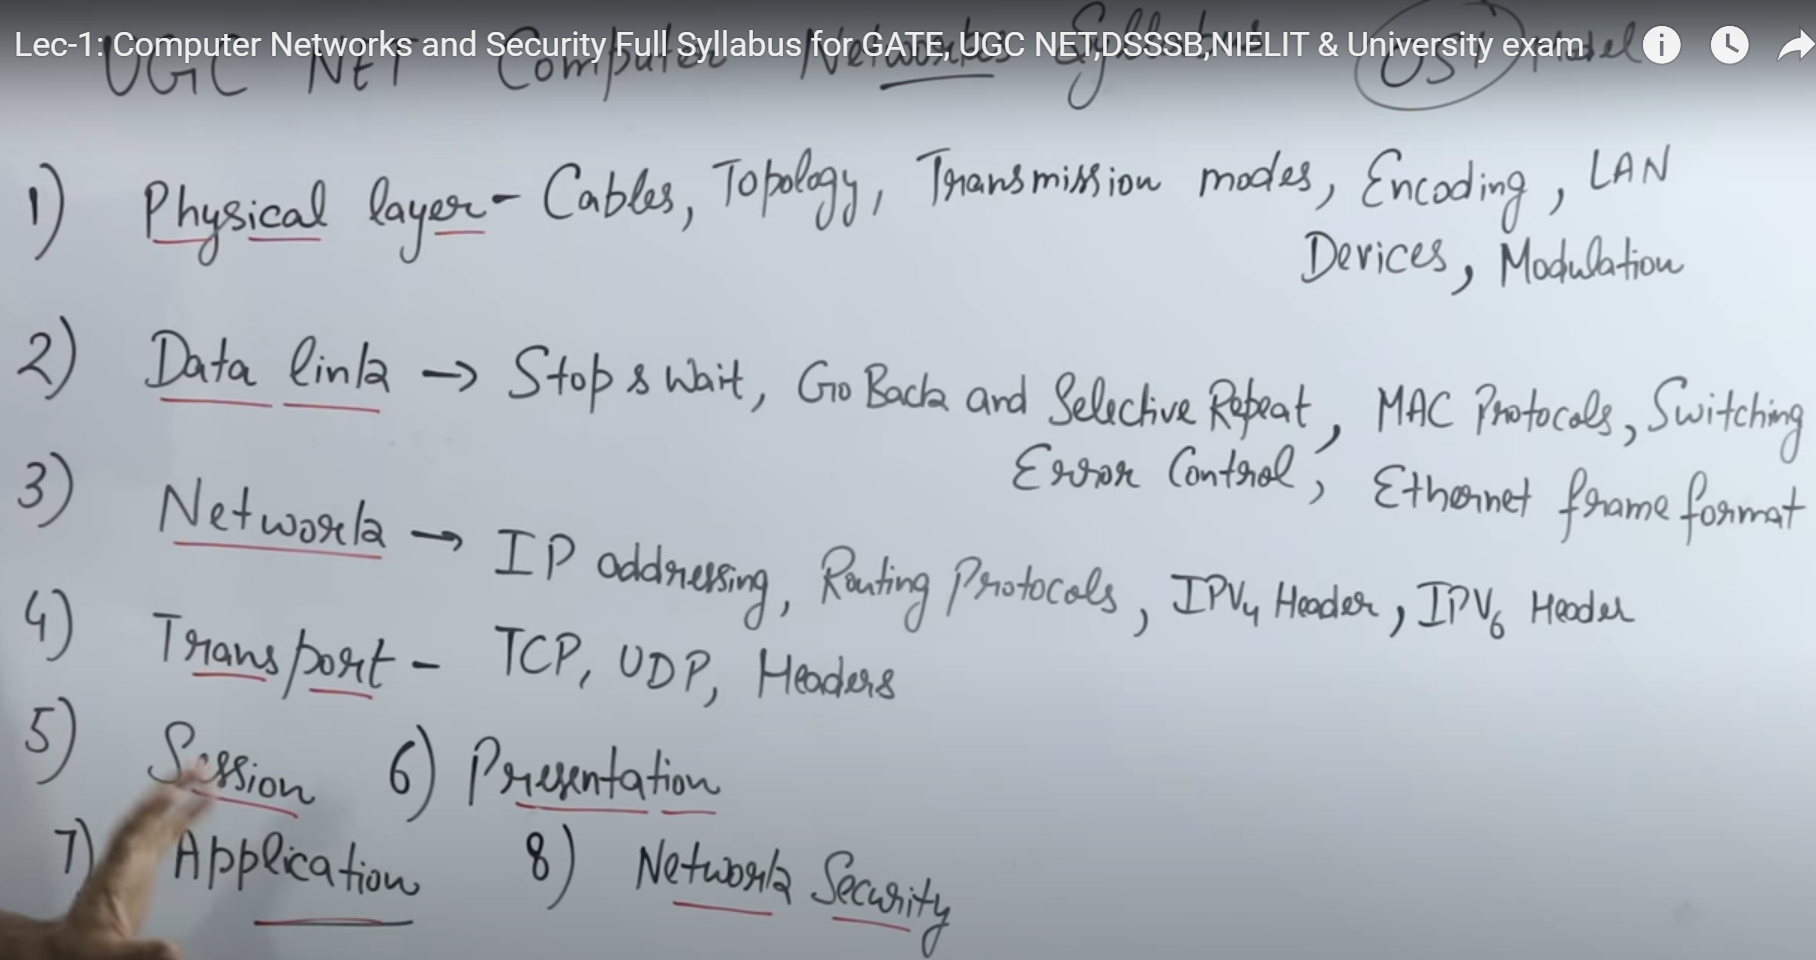 Lec-1: Computer Networks and Security Full Syllabus for GATE, UGC NET,DSSSB,NIELIT & University exam
UGC NET Computer Networks Syllabus OSI Model
1) Physical layer - Cables, Topology, Transmission modes, Encoding, LAN
Devices, Modulation
2) Data link → Stop & Wait, Go Back and Selective Repeat, MAC Protocols, Switching
Error Control, Ethernet frame format
3) Network → IP addressing, Routing Protocols, IPV4 Header, IPV6 Header
4) Transport - TCP, UDP, Headers
5) Session 6) Presentation
7) Application 8) Network Security